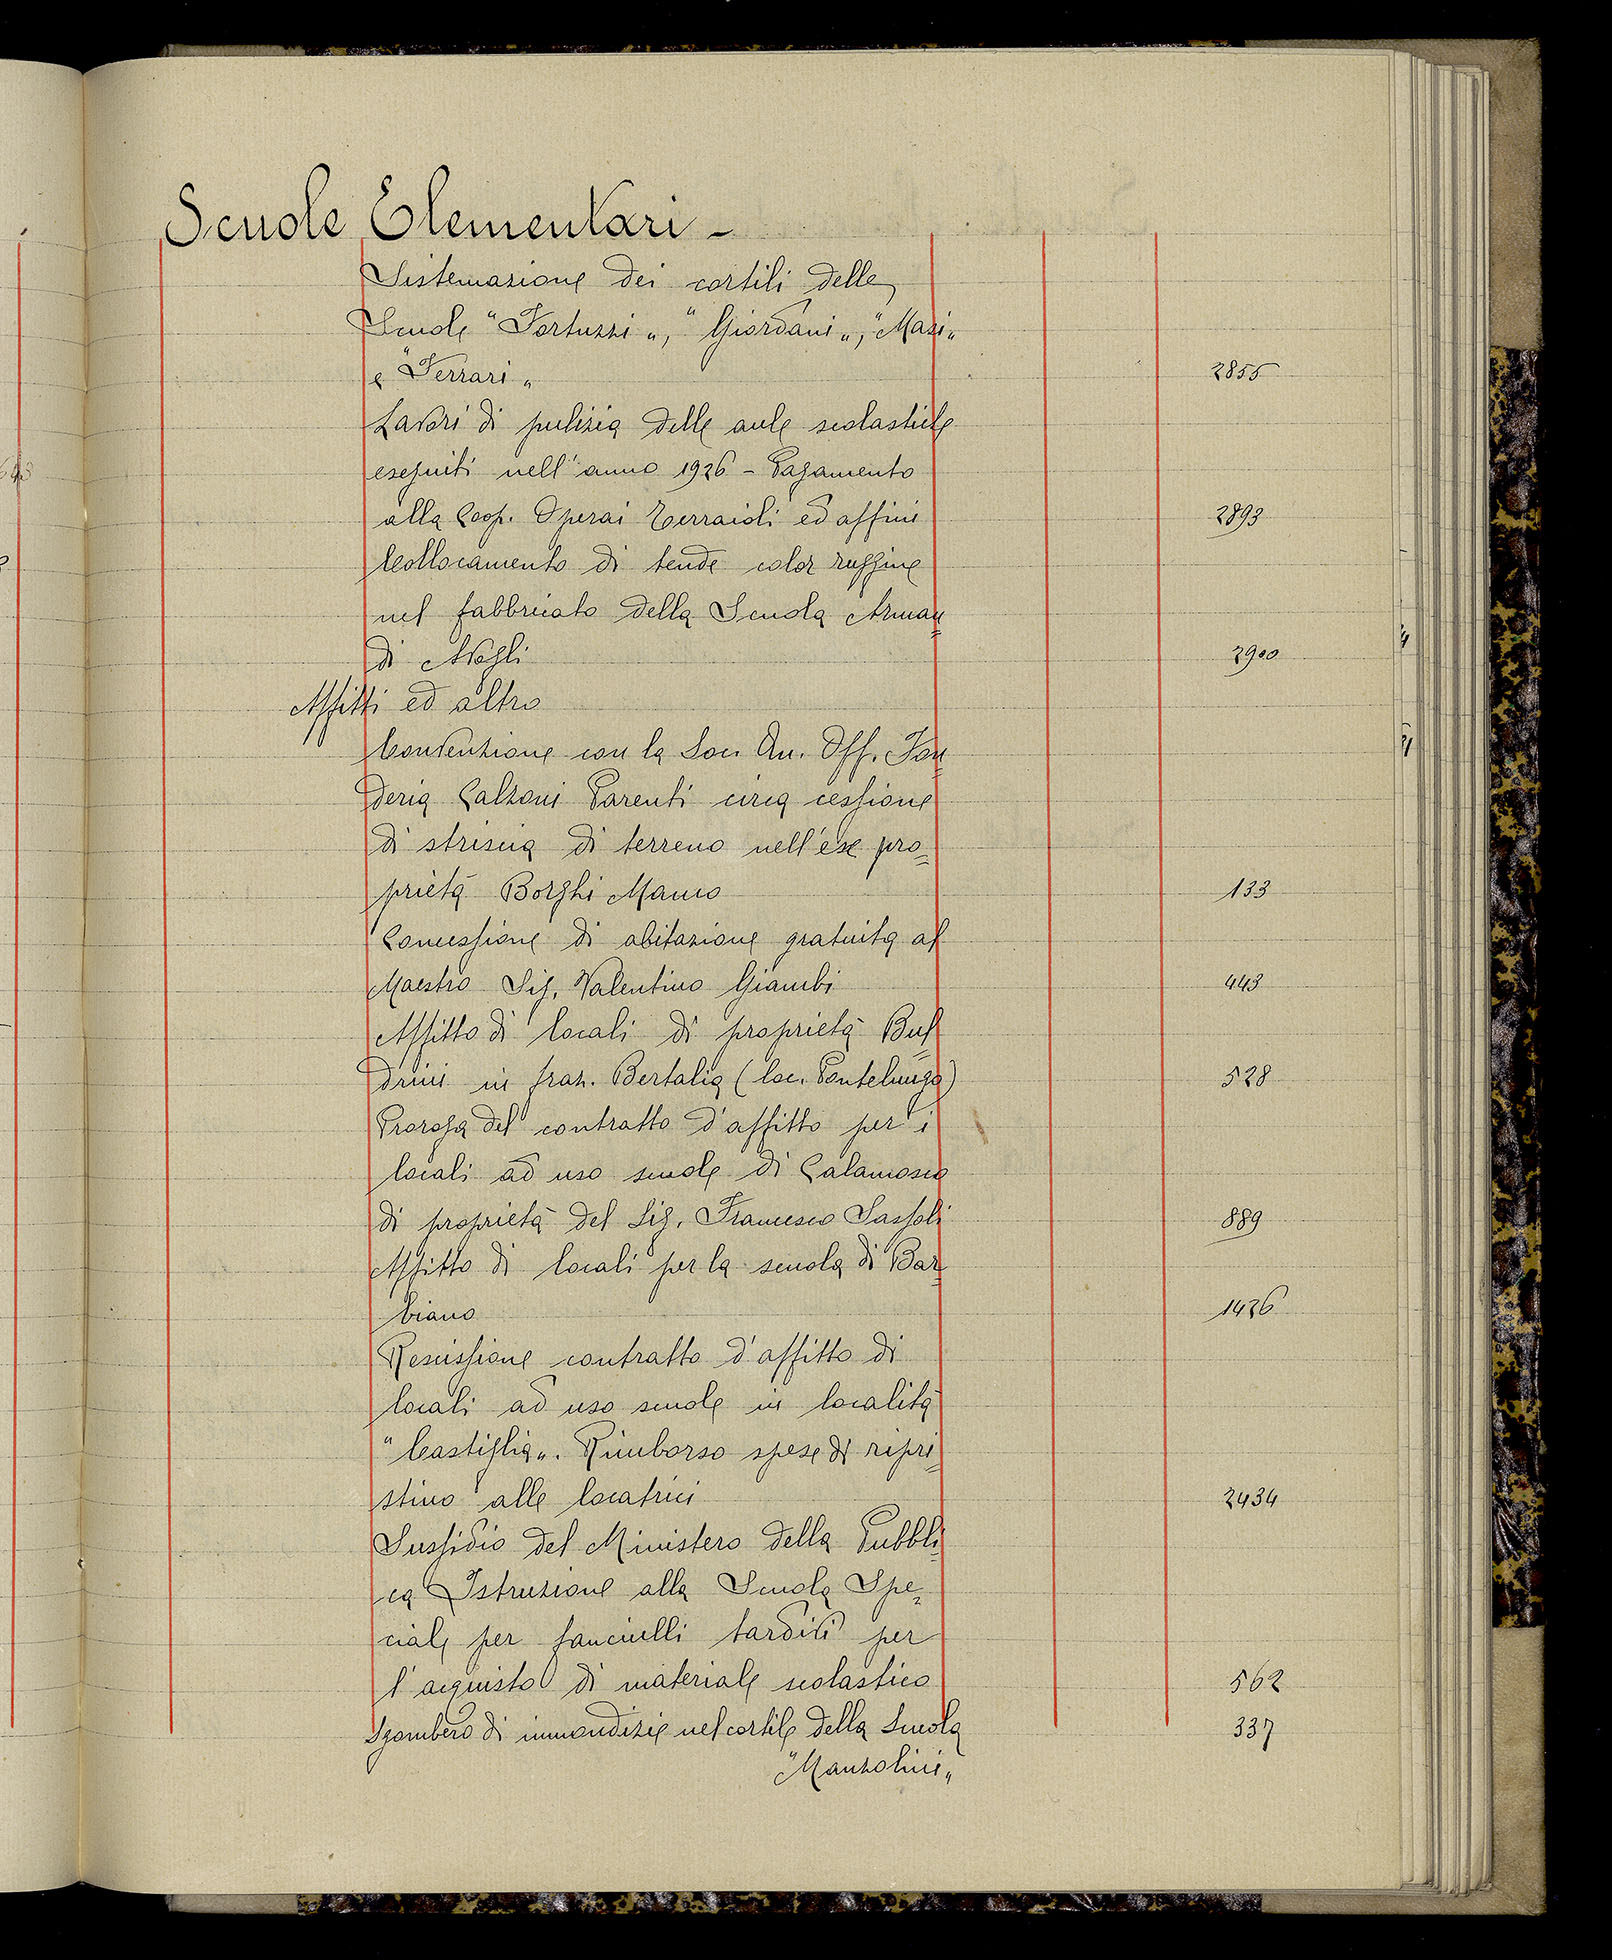 Scuole Elementari -
Sistemazione dei cortili delle
Scuole "Fortuzzi„, "Giordani„, "Masi„
e "Ferrari„ 2855
Lavori di pulizia delle aule scolastiche
eseguiti nell'anno 1926 - Pagamento
alla Coop. Operai Terraioli ed affini 2893
Collocamento di tende color ruggine
nel fabbricato della Scuola Arman=
di Avogli 2900
Affitti ed altro
Convenzione con la Soc. An. Off. Fon=
deria Calzoni Parenti circa cessione
di striscia di terreno nell'ex pro=
prietà Borghi Mamo 133
Concessione di abitazione gratuita al
Maestro Sig. Valentino Giambi 443
Affitto di locali di proprietà Bul=
drini in fraz. Bertalia (loc. Pontelungo) 528
Proroga del contratto d'affitto per i
locali ad uso scuole di Calamosco
di proprietà del Sig. Francesco Sassoli 889
Affitto di locali per la scuola di Bar=
biano 1426
Rescissione contratto d'affitto di
locali ad uso scuole in località
"Castiglia„. Rimborso spese di ripri=
stino alle locatrici 2434
Sussidio del Ministero della Pubbli=
ca Istruzione alla Scuola Spe=
ciale per fanciulli tardivi per
l'acquisto di materiale scolastico 562
Sgombero di immondizie nel cortile della Scuola 337
"Manzolini„